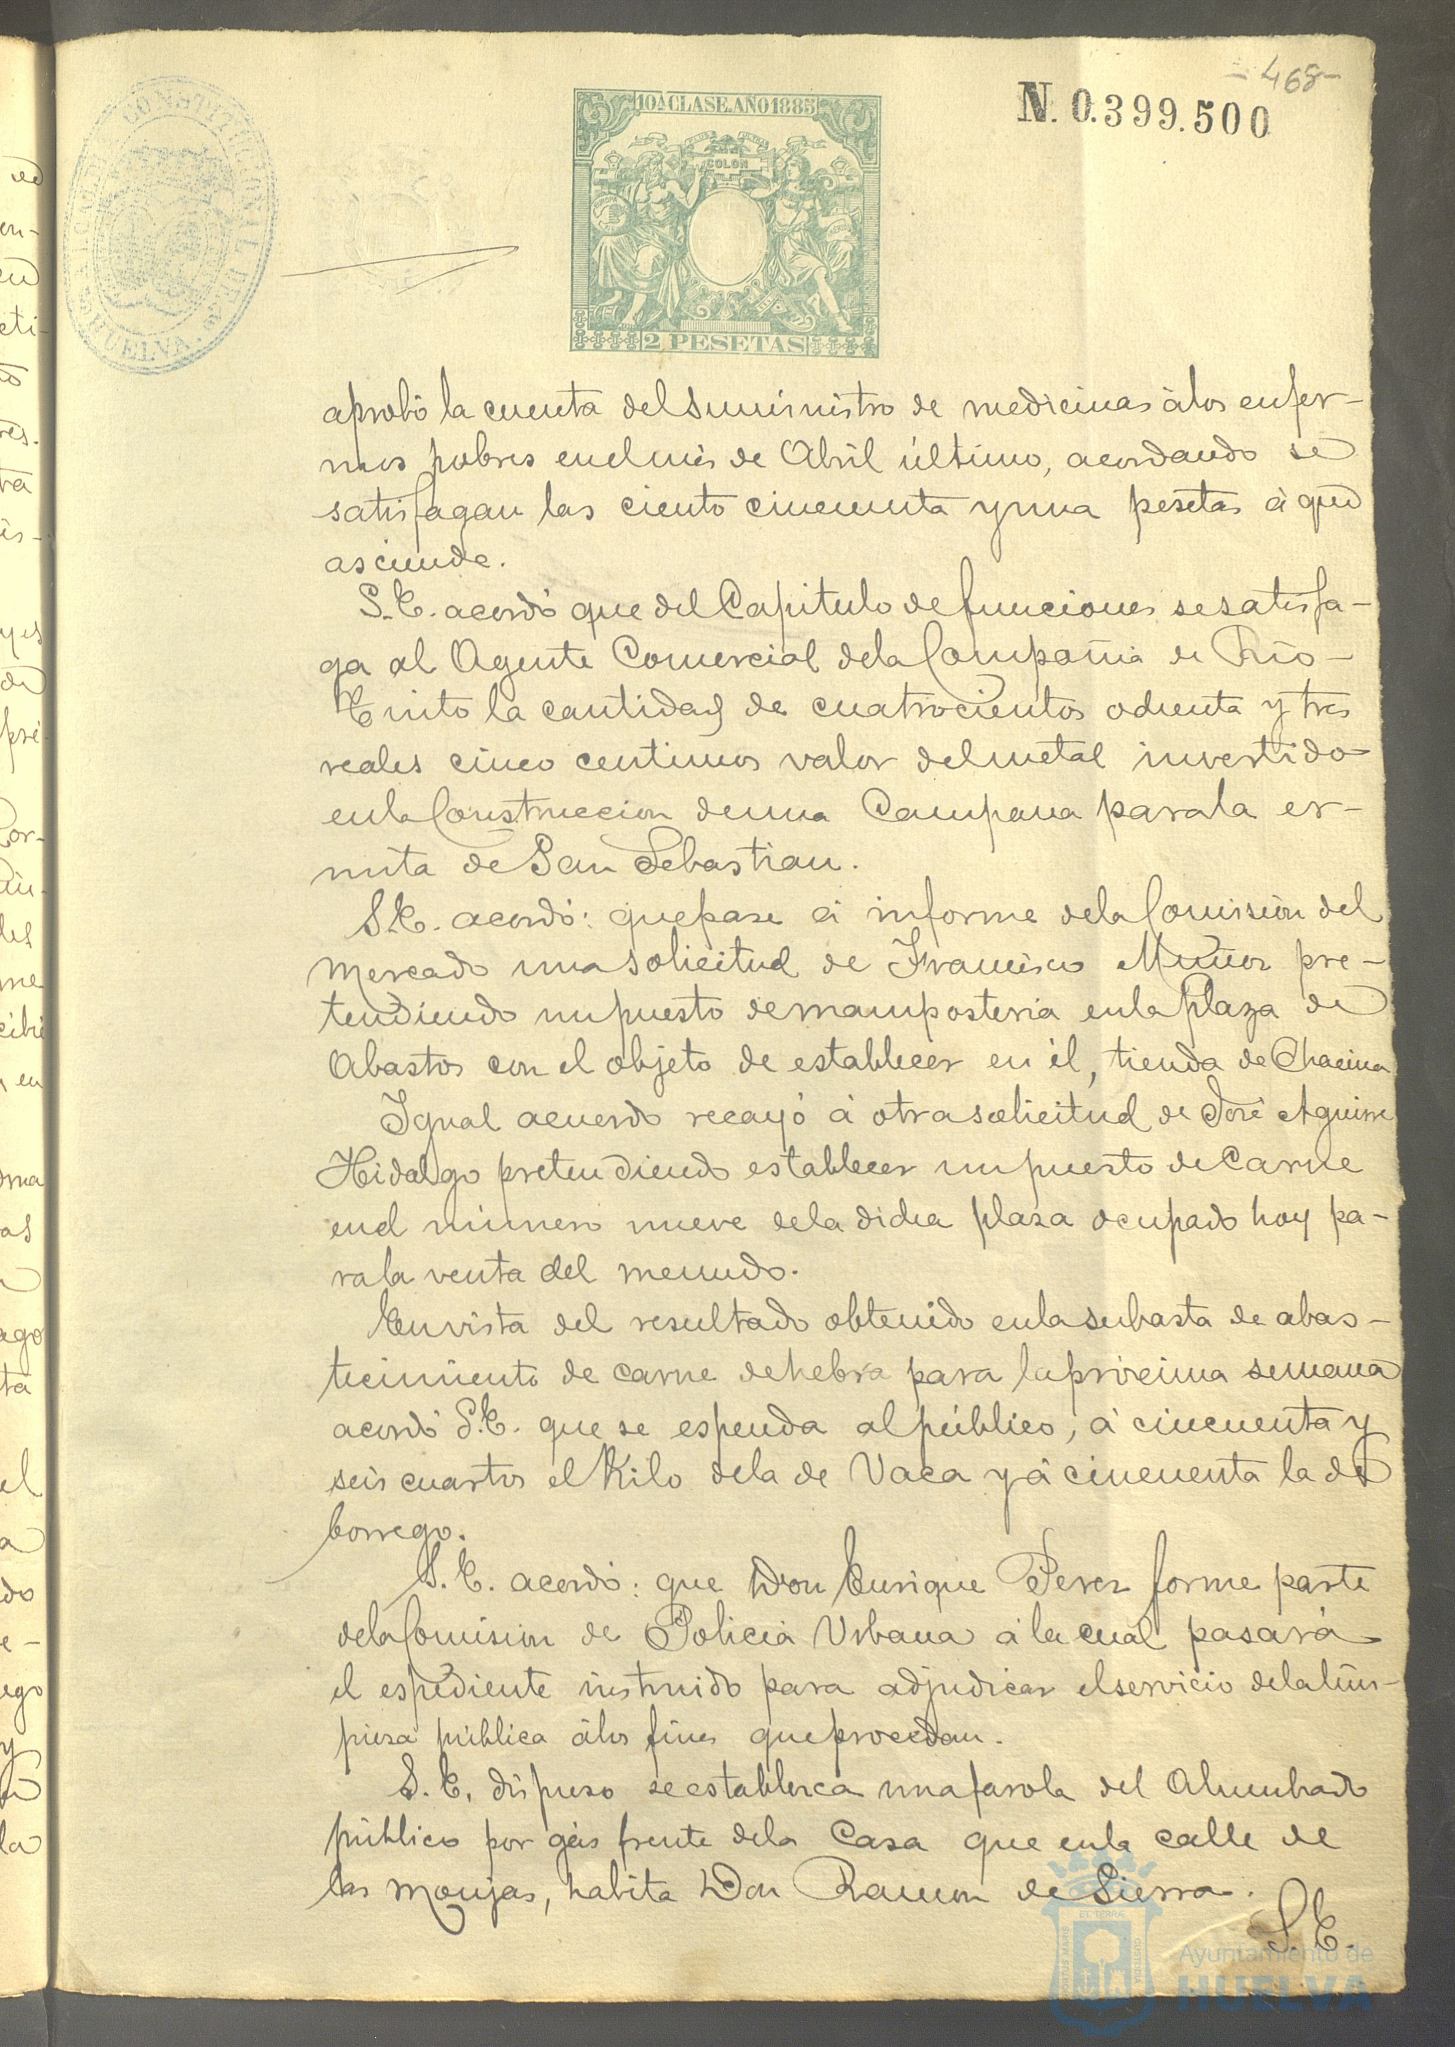 468
N. 0.399.500
10ª CLASE. AÑO 1885
COLON
2 PESETAS
CONSTITUCIONAL DE
HUELVA.
aprobó la cuenta del suministro de medicinas álos enfer-
mos pobres enelmes de Abril último, acordando se
satisfagan las ciento cincuenta yuna pesetas á que
asciende.
S.E. acordó que del Capitulo de funciones sesatisfa-
ga al Agente Comercial dela Compañia de Rio-
Tinto la cantidad de cuatrocientos ochenta y tres
reales cinco centimos valor delmetal invertido
enla Construccion deuna Campana parala er-
mita de San Sebastian.
S.E. acordó: quepase á informe dela Comision del
Mercado unasolicitud de Francisco Muñoz pre-
tendiendo unpuesto demamposteria enla Plaza de
Abastos con el objeto de establecer en él, tienda de Chacina
Igual acuerdo recayó á otrasolicitud de José Aguirre
Hidalgo pretendiendo establecer unpuesto deCarne
enel número nueve dela dicha plaza ocupado hoy pa-
rala venta del menudo.
Envista del resultado obtenido enlasubasta de abas-
tecimiento de carne dehebra para lapròcima semana
acordó S.E. que se espenda alpúblico, á cincuenta y
seis cuartos el Kilo dela de Vaca y á cincuenta la de
borrego.
S.E. acordó: que Don Enrique Perez forme parte
dela Comision de Policia Urbana á la cual pasará
el espediente instruido para adjudicar elservicio delalim-
pieza pública álos fines queprocedan.
S.E. dispuso seestablezca unafarola del Alumbrado
público por gas frente dela Casa que enla calle de
las Monjas, habita Don Ramon de Sierra.
S.E.
Ayuntamiento de
HUELVA